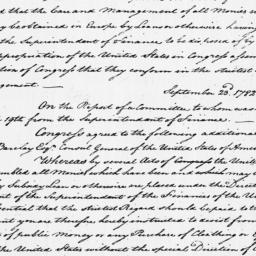 ed that the Care and Management of all Monies wh
y be obtained in Europe by Loan or otherwise having
the Superintendent of Finance to be disposed of by
ppropriation of the United States in Congress assem
ction of Congress that they conform in the strictest m
gement —
September 23d, 1782
On the Report of a Committee to whom was
19th from the Superintendent of Finance —
Congress agreed to the following additional
Barclay Esqr. Consul General of the United States of Amer
Whereas by several Acts of Congress the Unite
mbled all Monies which have been and which may
by Subsidy Loan or otherwise are placed under the Directi
of the Superintendent of the Finances of the Un
sential that the strictest Regard should be paid to th
you are therefore hereby instructed to desist from
of public Money or any Purchase of Clothing or
the United States without the special Direction of C